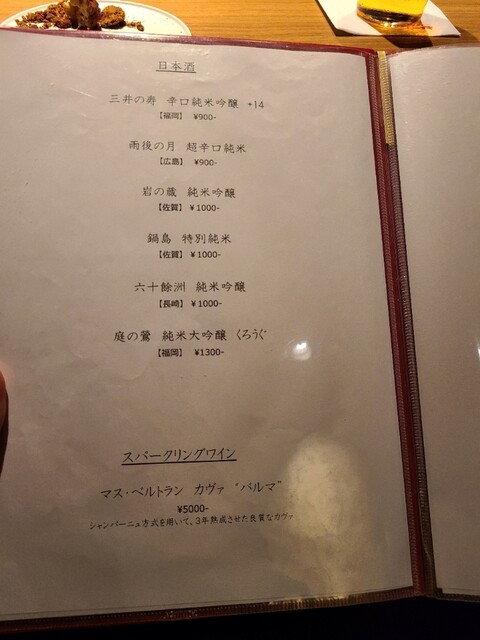 日本酒
三井の寿 辛口純米吟醸 +14
【福岡】 ¥900-
雨後の月 超辛口純米
【広島】 ¥900-
岩の蔵 純米吟醸
【佐賀】 ¥1000-
鍋島 特別純米
【佐賀】 ¥1000-
六十餘洲 純米吟醸
【長崎】 ¥1000-
庭の鶯 純米大吟醸 くろうぐ
【福岡】 ¥1300-
スパークリングワイン
マス・ベルトラン カヴァ “バルマ”
¥5000-
シャンパーニュ方式を用いて、3年熟成させた良質なカヴァ